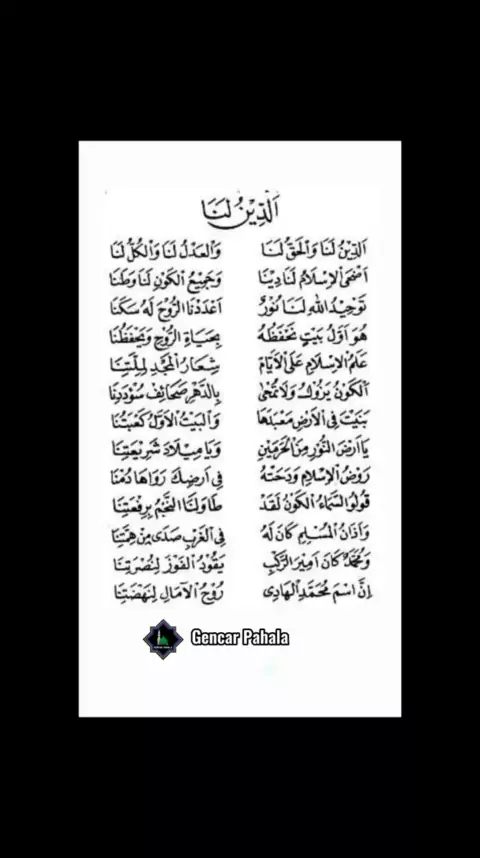 اَلدِّيْنُ لَنَا
اَلدِّيْنُ لَنَا وَالْحَقُّ لَنَا وَالْعَدْلُ لَنَا وَالْكُلُّ لَنَا
اَضْحَى الْاِسْلَامُ لَنَا دِيْنَا وَجَمِيْعُ الْكَوْنِ لَنَا وَطَنَا
تَوْحِيْدُ اللهِ لَنَا نُوْرٌ اَعْدَدْنَا الرُّوْحَ لَهُ سَكَنَا
هُوَ اَوَّلُ بَيْتٍ نَحْفَظُهُ بِحَيَاةِ الرُّوْحِ وَيَحْفَظُنَا
عَلَمُ الْاِسْلَامِ عَلَى الْاَيَّامِ شِعَارُ الْمَجْدِ لِمِلَّتِنَا
اَلْكَوْنُ يَزُوْلُ وَلَا تُمْحٰى بِالدَّهْرِ صَحَائِفُ سُؤْدَدِنَا
بَنَيْتَ فِى الْاَرْضِ مَعْبَدَهَا وَالْبَيْتُ الْاَوَّلُ كَعْبَتُنَا
يَا اَرْضَ النُّوْرِ مِنَ الْحَرَمَيْنِ وَيَا مِيْلَادَ شَرِيْعَتِنَا
رَوْضُ الْاِسْلَامِ وَدَحَتُهُ فِى اَرْضِكِ رَوَاهَا دُمْنَا
قُوْلُوْا السَّمَاءُ الْكَوْنُ لَقَدْ طَاوَلْنَا النَّجْمُ بِرِفْعَتِنَا
وَاَذَانُ الْمُسْلِمِ كَانَ لَهُ فِى الْغَرْبِ صَدًى مِنْ هِمَّتِنَا
وَمُحَمَّدٌ كَانَ اَمِيْرَ الرَّكْبِ يَقُوْدُ الْفَوْزَ لِنُصْرَتِنَا
اِنَّ اسْمَ مُحَمَّدِ الْهَادِى رُوْحُ الْاٰمَالِ لِنَهْضَتِنَا
Gencar Pahala